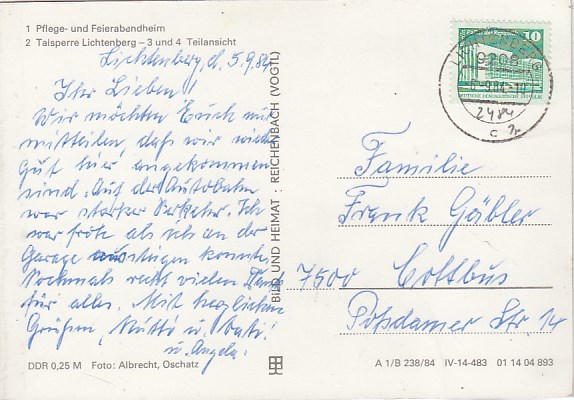 1 Pflege- und Feierabendheim
2 Talsperre Lichtenberg – 3 und 4 Teilansicht
Lichtenberg, d. 5.9.84
Ihr Lieben!
Wir möchten Euch nur
mitteilen, daß wir wieder
gut hier angekommen
sind. Auf der Autobahn
war starker Verkehr. Ich
war froh als ich an der
Garage aussteigen konnte.
Nochmals recht vielen Dank
für alles. Mit herzlichen
Grüßen, Mutti u. Vati
u. Angela.
DDR 0,25 M Foto: Albrecht, Oschatz
BILD UND HEIMAT · REICHENBACH (VOGTL)
10
LICHTENBERG
9208
2484
Familie
Frank Gäbler
7500 Cottbus
Potsdamer Str. 14
A 1/B 238/84 IV-14-483 01 14 04 893